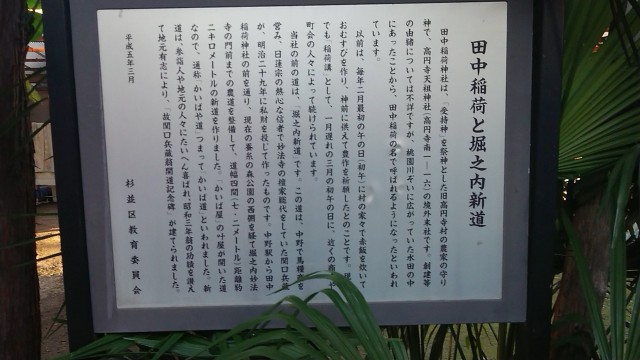 田中稲荷と堀之内新道
田中稲荷神社は、「受持神」を祭神とした旧高円寺村の農家の守り
神で、高円寺天祖神社(高円寺南一ー一六)の境外末社です。創建等
の由緒については不詳ですが、桃園川ぞいに広がっていた水田の中
にあったことから、田中稲荷の名で呼ばれるようになったといわれ
ています。
以前は、毎年二月最初の午の日(初午)に村の家々で赤飯を炊いて
おむすびを作り、神前に供えて豊作を祈願したとのことです。現
でも「稲荷講」として、一月遅れの三月の初午の日に、近くの商
町会の人々によって続けられています。
当社の前の道は、「堀之内新道」です。この道は、中野で馬糧商を
営み、日蓮宗の熱心な信者で妙法寺の檀家総代をしていた関口兵蔵
が、明治二十九年に私財を投じて作ったものです。中野駅から田中
稲荷神社の前を通り、現在の蚕糸の森公園の西側を経て堀之内妙法
寺の門前までの農道を整備して、道幅四間(七・二メートル)距離約
二キロメートルの新道を作りました。「かいば屋」の叶屋が開いた道
なので、通称「かいばや道」つまって「かいば道」といわれました。新
道は、参詣人や地元の人々にたいへん喜ばれ、昭和三年翁の功績を讃え
て地元有志により、「故関口兵蔵翁開道記念碑」が建てられました。
平成五年三月
杉並区教育委員会